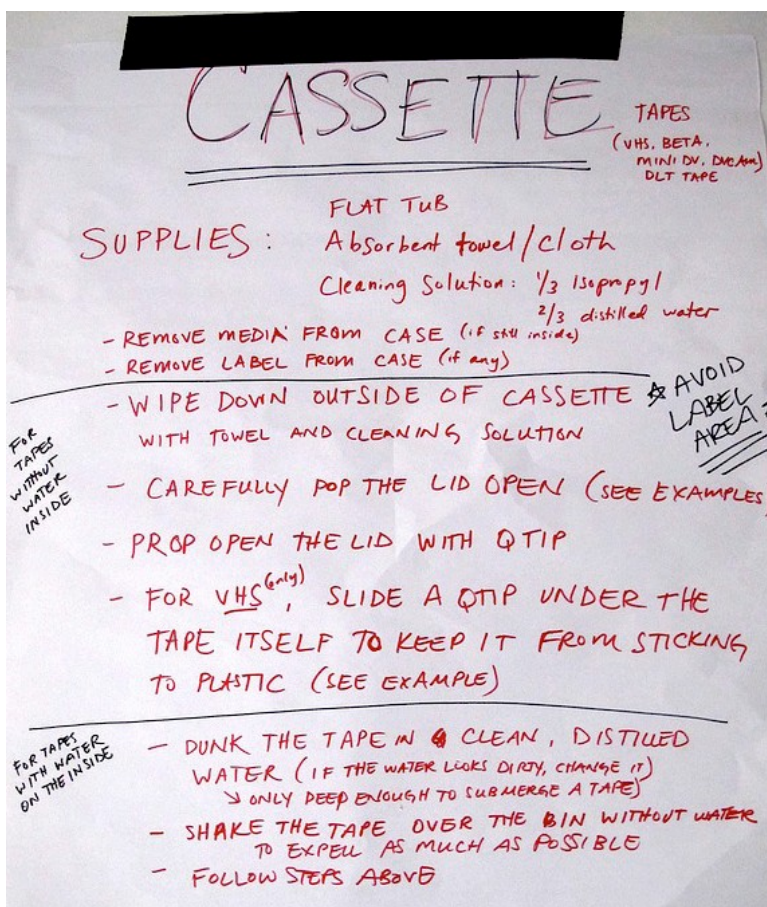 CASSETTE
TAPES
(VHS, BETA,
MINI DV, DVCAM)
DLT TAPE
FLAT TUB
SUPPLIES: Absorbent towel/cloth
Cleaning Solution: 1/3 Isopropyl
2/3 distilled water
- REMOVE MEDIA FROM CASE (if still inside)
- REMOVE LABEL FROM CASE (if any)
FOR
TAPES
WITHOUT
WATER
INSIDE
- WIPE DOWN OUTSIDE OF CASSETTE ☆ AVOID
LABEL
AREA
WITH TOWEL AND CLEANING SOLUTION
- CAREFULLY POP THE LID OPEN (SEE EXAMPLES)
- PROP OPEN THE LID WITH QTIP
- FOR VHS (only), SLIDE A QTIP UNDER THE
TAPE ITSELF TO KEEP IT FROM STICKING
TO PLASTIC (SEE EXAMPLE)
FOR TAPES
WITH WATER
ON THE INSIDE
- DUNK THE TAPE IN CLEAN, DISTILLED
WATER (IF THE WATER LOOKS DIRTY, CHANGE IT)
↘ ONLY DEEP ENOUGH TO SUBMERGE A TAPE)
- SHAKE THE TAPE OVER THE BIN WITHOUT WATER
TO EXPELL AS MUCH AS POSSIBLE
- FOLLOW STEPS ABOVE